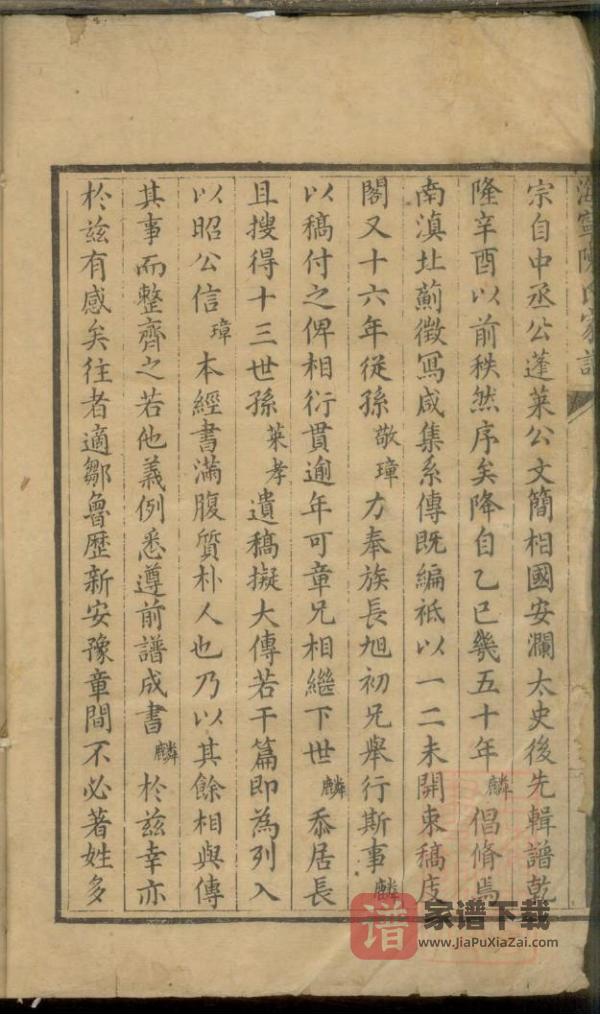 海寧陳氏家譜
宗自中丞公蓬萊公文簡相國安瀾太史後先輯譜乾
隆辛酉以前秩然序矣降自乙巳幾五十年麟倡脩焉
南滇北薊徴冩咸集系傳既編祗以一二未開束稿庋
閣又十六年従孫敬璋力奉族長旭初兄舉行斯事麟
以稿付之俾相衍貫逾年可章兄相繼下世麟忝居長
且搜得十三世孫萊孝遺稿擬大傳若干篇即為列入
以昭公信璋本經書滿腹質朴人也乃以其餘相與傳
其事而整齊之若他義例悉遵前譜成書麟於兹幸亦
於兹有感矣往者適鄒魯歴新安豫章間不必著姓多
谱
家谱下载
www.JiaPuXiaZai.com